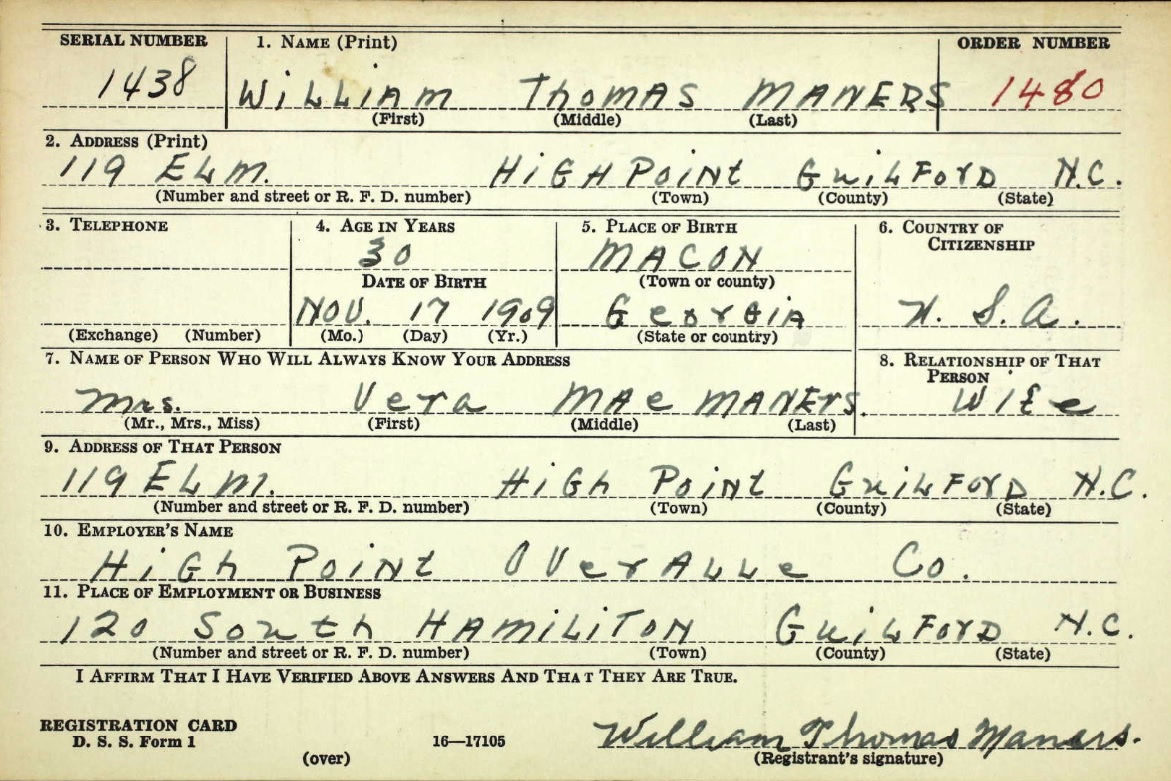 SERIAL NUMBER 1. NAME (Print) ORDER NUMBER
1438 WiLLiAm ThomAS MANERS 1480
(First) (Middle) (Last)
2. ADDRESS (Print)
119 ELM. HiGH Point GuiLFord N.C.
(Number and street or R. F. D. number) (Town) (County) (State)
3. TELEPHONE 4. AGE IN YEARS 5. PLACE OF BIRTH 6. COUNTRY OF CITIZENSHIP
30 MACON
DATE OF BIRTH (Town or county)
NOV. 17 1909 GeorGiA U. S. A.
(Exchange) (Number) (Mo.) (Day) (Yr.) (State or country)
7. NAME OF PERSON WHO WILL ALWAYS KNOW YOUR ADDRESS 8. RELATIONSHIP OF THAT PERSON
Mrs. Vera MAe MANErs. Wife
(Mr., Mrs., Miss) (First) (Middle) (Last)
9. ADDRESS OF THAT PERSON
119 ELM. HiGh Point GuiLForD N.C.
(Number and street or R. F. D. number) (Town) (County) (State)
10. EMPLOYER'S NAME
HiGh Point OVerALLe Co.
11. PLACE OF EMPLOYMENT OR BUSINESS
120 South HAMiLiTON GuiLForD N.C.
(Number and street or R. F. D. number) (Town) (County) (State)
I AFFIRM THAT I HAVE VERIFIED ABOVE ANSWERS AND THAT THEY ARE TRUE.
REGISTRATION CARD
D. S. S. Form 1 16—17105 William Thomas Maners.
(over) (Registrant's signature)